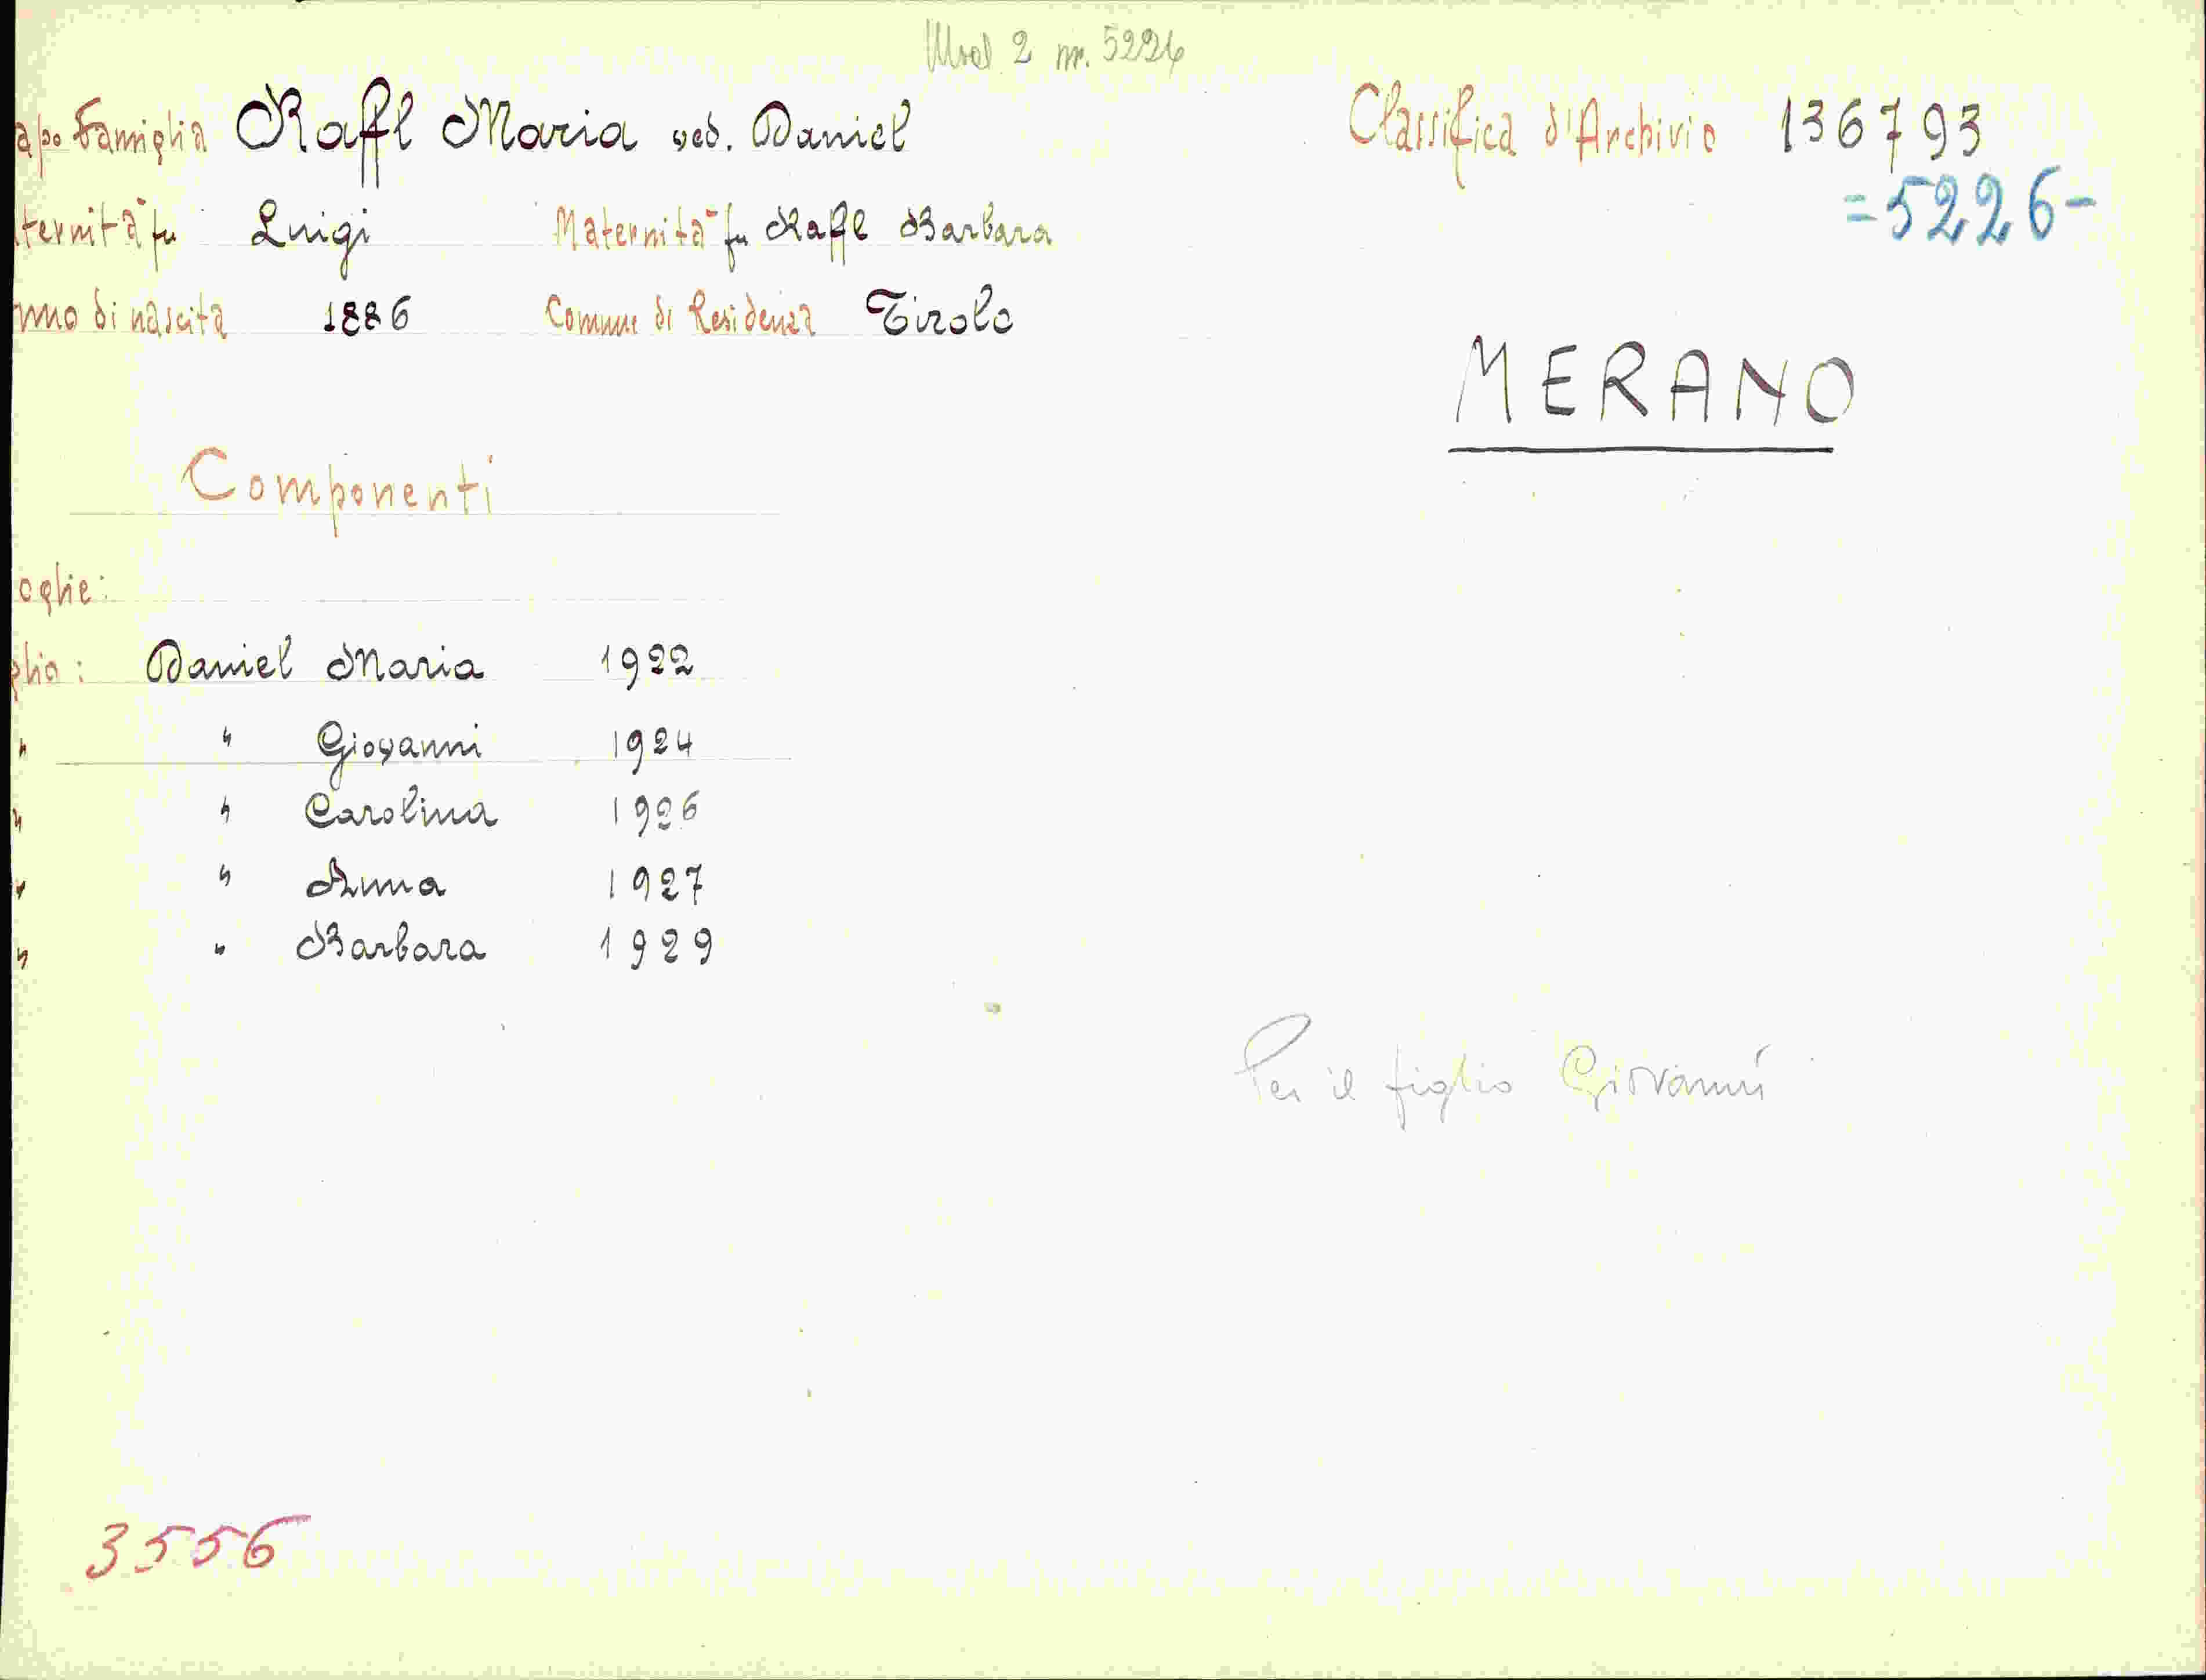 Mod 2 nr. 5226
apo Famiglia Raffl Maria ved. Daniel
Classifica d'Archivio 136793
=5226-
ternità fu Luigi Maternità fu Raffl Barbara
nno di nascita 1886 Comune di Residenza Tirolo
MERANO
Componenti
oglie:
glio: Daniel Maria 1922
" " Giovanni 1924
" " Carolina 1926
" " Anna 1927
" " Barbara 1929
Per il figlio Giovanni
3556